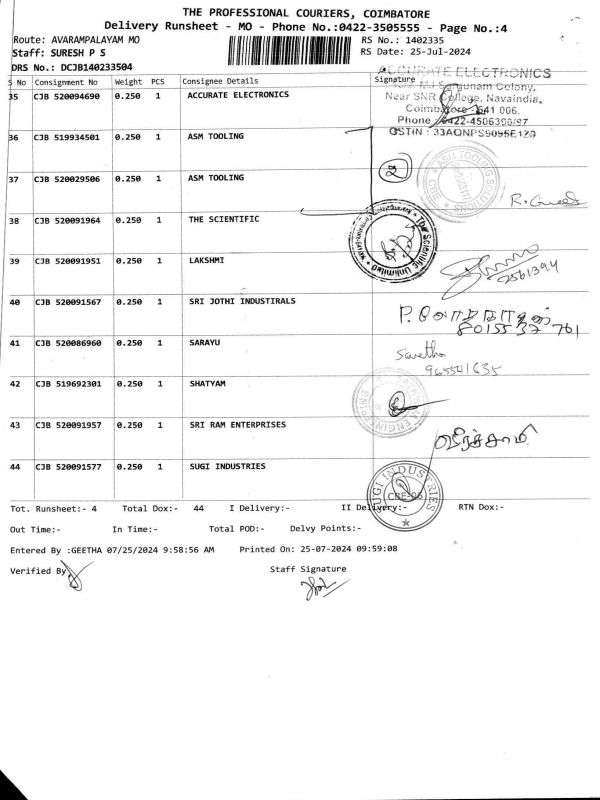 THE PROFESSIONAL COURIERS, COIMBATORE
Delivery Runsheet - MO - Phone No.:0422-3505555 - Page No.:4
Route: AVARAMPALAYAM MO
RS No.: 1402335
Staff: SURESH P S
RS Date: 25-Jul-2024
DRS No.: DCJB140233504
S No Consignment No Weight PCS Consignee Details Signature
35 CJB 520094690 0.250 1 ACCURATE ELECTRONICS
ACCURATE ELECTRONICS
Colony,
Near SNR College, Navaindia,
Coimbatore - 641 006.
Phone : 0422-4506396/97
GSTIN : 33AQNPS9095E1Z0
36 CJB 519934501 0.250 1 ASM TOOLING
37 CJB 520029506 0.250 1 ASM TOOLING
2
ASM TOOLING SOLUTIONS
CBE
38 CJB 520091964 0.250 1 THE SCIENTIFIC
The Scientific Unlimited
39 CJB 520091951 0.250 1 LAKSHMI
40 CJB 520091567 0.250 1 SRI JOTHI INDUSTIRALS
41 CJB 520086960 0.250 1 SARAYU
Savetha
42 CJB 519692301 0.250 1 SHATYAM
ENGINEERING
43 CJB 520091957 0.250 1 SRI RAM ENTERPRISES
44 CJB 520091577 0.250 1 SUGI INDUSTRIES
SUGI INDUSTRIES
Tot. Runsheet:- 4 Total Dox:- 44 I Delivery:- II Delivery:- RTN Dox:-
Out Time:- In Time:- Total POD:- Delvy Points:-
Entered By :GEETHA 07/25/2024 9:58:56 AM Printed On: 25-07-2024 09:59:08
Verified By
Staff Signature